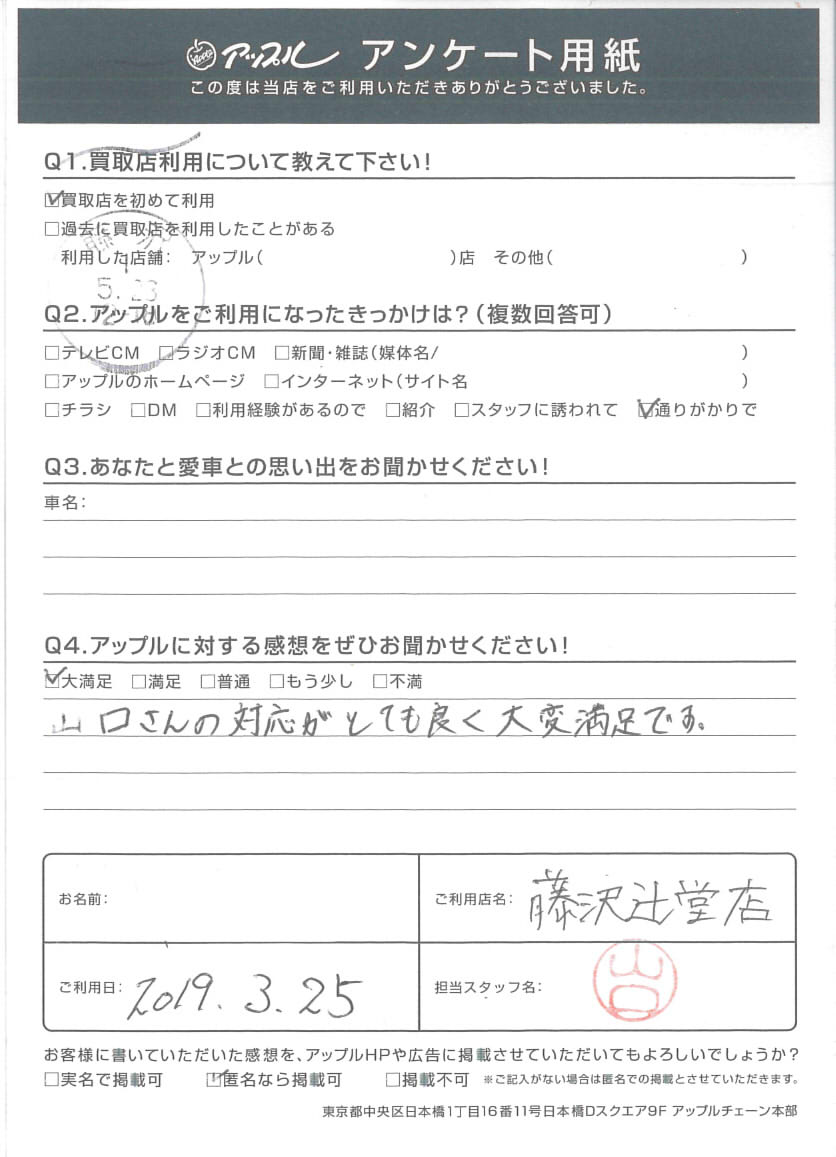 Apple アップル アンケート用紙
この度は当店をご利用いただきありがとうございました。
Q1.買取店利用について教えて下さい!
☑買取店を初めて利用
□過去に買取店を利用したことがある
利用した店舗: アップル( )店 その他( )
5.23
Q2.アップルをご利用になったきっかけは?(複数回答可)
□テレビCM □ラジオCM □新聞・雑誌(媒体名/ )
□アップルのホームページ □インターネット(サイト名 )
□チラシ □DM □利用経験があるので □紹介 □スタッフに誘われて ☑通りがかりで
Q3.あなたと愛車との思い出をお聞かせください!
車名:
Q4.アップルに対する感想をぜひお聞かせください!
☑大満足 □満足 □普通 □もう少し □不満
山口さんの対応がとても良く大変満足です。
お名前:
ご利用店名: 藤沢辻堂店
ご利用日: 2019.3.25
担当スタッフ名: 山口
お客様に書いていただいた感想を、アップルHPや広告に掲載させていただいてもよろしいでしょうか?
□実名で掲載可 ☑匿名なら掲載可 □掲載不可 ※ご記入がない場合は匿名での掲載とさせていただきます。
東京都中央区日本橋1丁目16番11号日本橋Dスクエア9F アップルチェーン本部